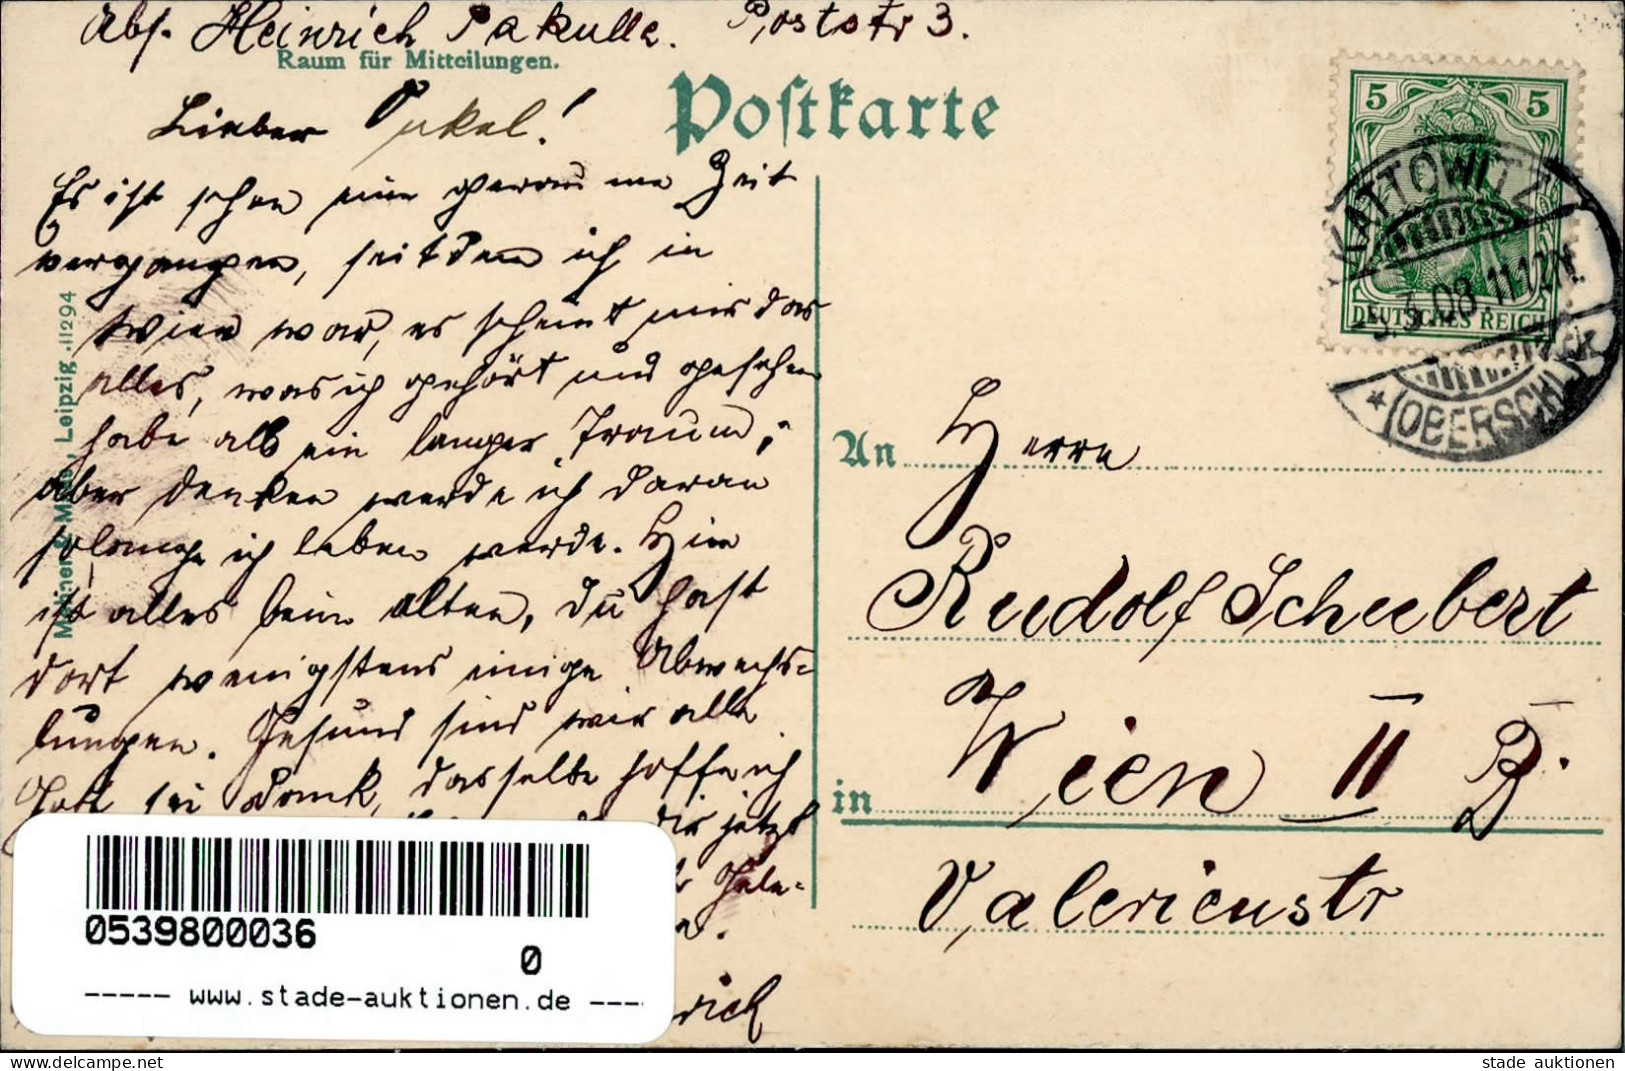 Abs. Heinrich Pakulla. Poststr 3.
Raum für Mitteilungen.
Postkarte
Lieber Onkel!
Es ist schon eine geraume Zeit
vergangen, seitdem ich in
Wien war, es scheint mir das
alles, was ich gehört und gesehen
habe als ein langer Traum;
aber denken werde ich daran
solange ich leben werde. Hier
ist alles beim alten, du hast
dort wenigstens einige Abwechs-
lungen. Gesund sind wir alle
Gott sei Dank, dasselbe hoffe ich
dir jetzt
Gele-
rich
Leipzig .11294
5 5
DEUTSCHES REICH
KATTOWITZ
3.08.11-12V.
* (OBERSCHL)
An Herrn
Rudolf Schubert
in Wien II B.
Valerienstr
0539800036
0
----- www.stade-auktionen.de ----
stade auktionen